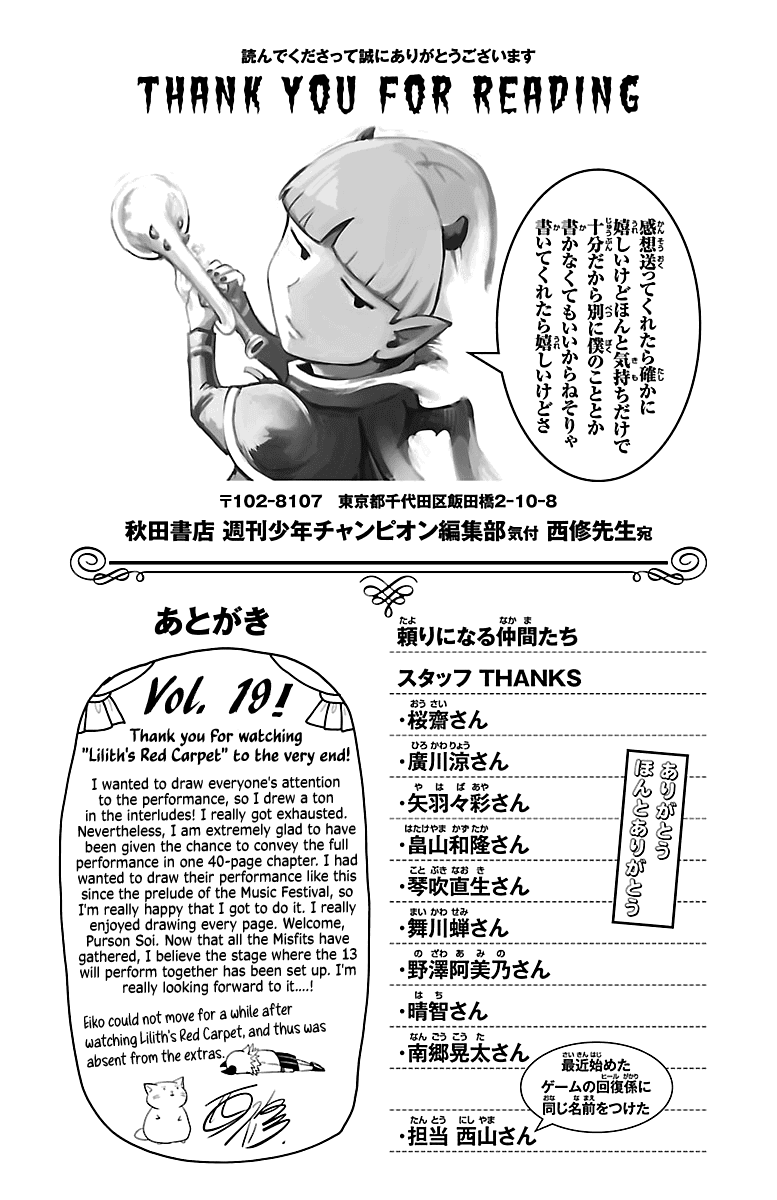 読んでくださって誠にありがとうございます
THANK YOU FOR READING
感想送ってくれたら確かに
嬉しいけどほんと気持ちだけで
十分だから別に僕のこととか
書かなくてもいいからねそりゃ
書いてくれたら嬉しいけどさ
〒102-8107 東京都千代田区飯田橋2-10-8
秋田書店 週刊少年チャンピオン編集部気付 西修先生宛
あとがき
Vol. 19!
Thank you for watching
"Lilith's Red Carpet" to the very end!
I wanted to draw everyone's attention
to the performance, so I drew a ton
in the interludes! I really got exhausted.
Nevertheless, I am extremely glad to have
been given the chance to convey the full
performance in one 40-page chapter. I had
wanted to draw their performance like this
since the prelude of the Music Festival, so
I'm really happy that I got to do it. I really
enjoyed drawing every page. Welcome,
Purson Soi. Now that all the Misfits have
gathered, I believe the stage where the 13
will perform together has been set up. I'm
really looking forward to it....!
Eiko could not move for a while after
watching Lilith's Red Carpet, and thus was
absent from the extras.
西修
頼りになる仲間たち
スタッフ THANKS
・桜齋さん
・廣川涼さん
・矢羽々彩さん
・畠山和隆さん
・琴吹直生さん
・舞川蝉さん
・野澤阿美乃さん
・晴智さん
・南郷晃太さん
・担当 西山さん
最近始めた
ゲームの回復係に
同じ名前をつけた
ありがとう
ほんとありがとう